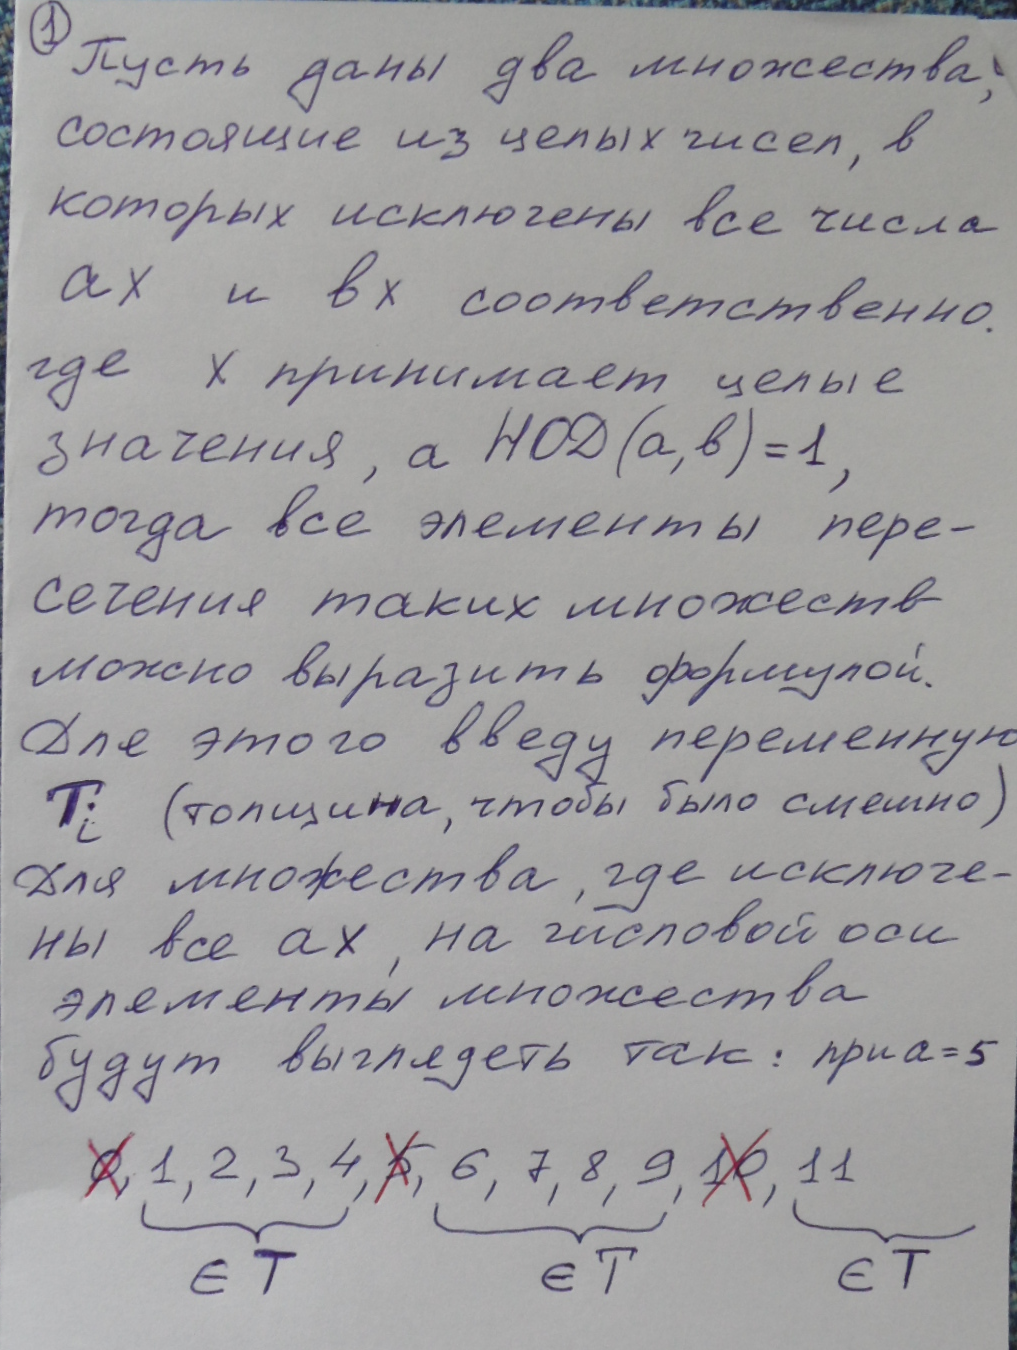 1
Пусть даны два множества,
состоящие из целых чисел, в
которых исключены все числа
ах и вх соответственно.
где х принимает целые
значения, а НОD(а,в)=1,
тогда все элементы пере-
сечения таких множеств
можно выразить формулой.
Для этого введу переменную
Tᵢ (толщина, чтобы было смешно)
Для множества, где исключе-
ны все ах, на числовой оси
элементы множества
будут выглядеть так: при а=5
0, 1, 2, 3, 4, 5, 6, 7, 8, 9, 10, 11
∈T ∈T ∈T